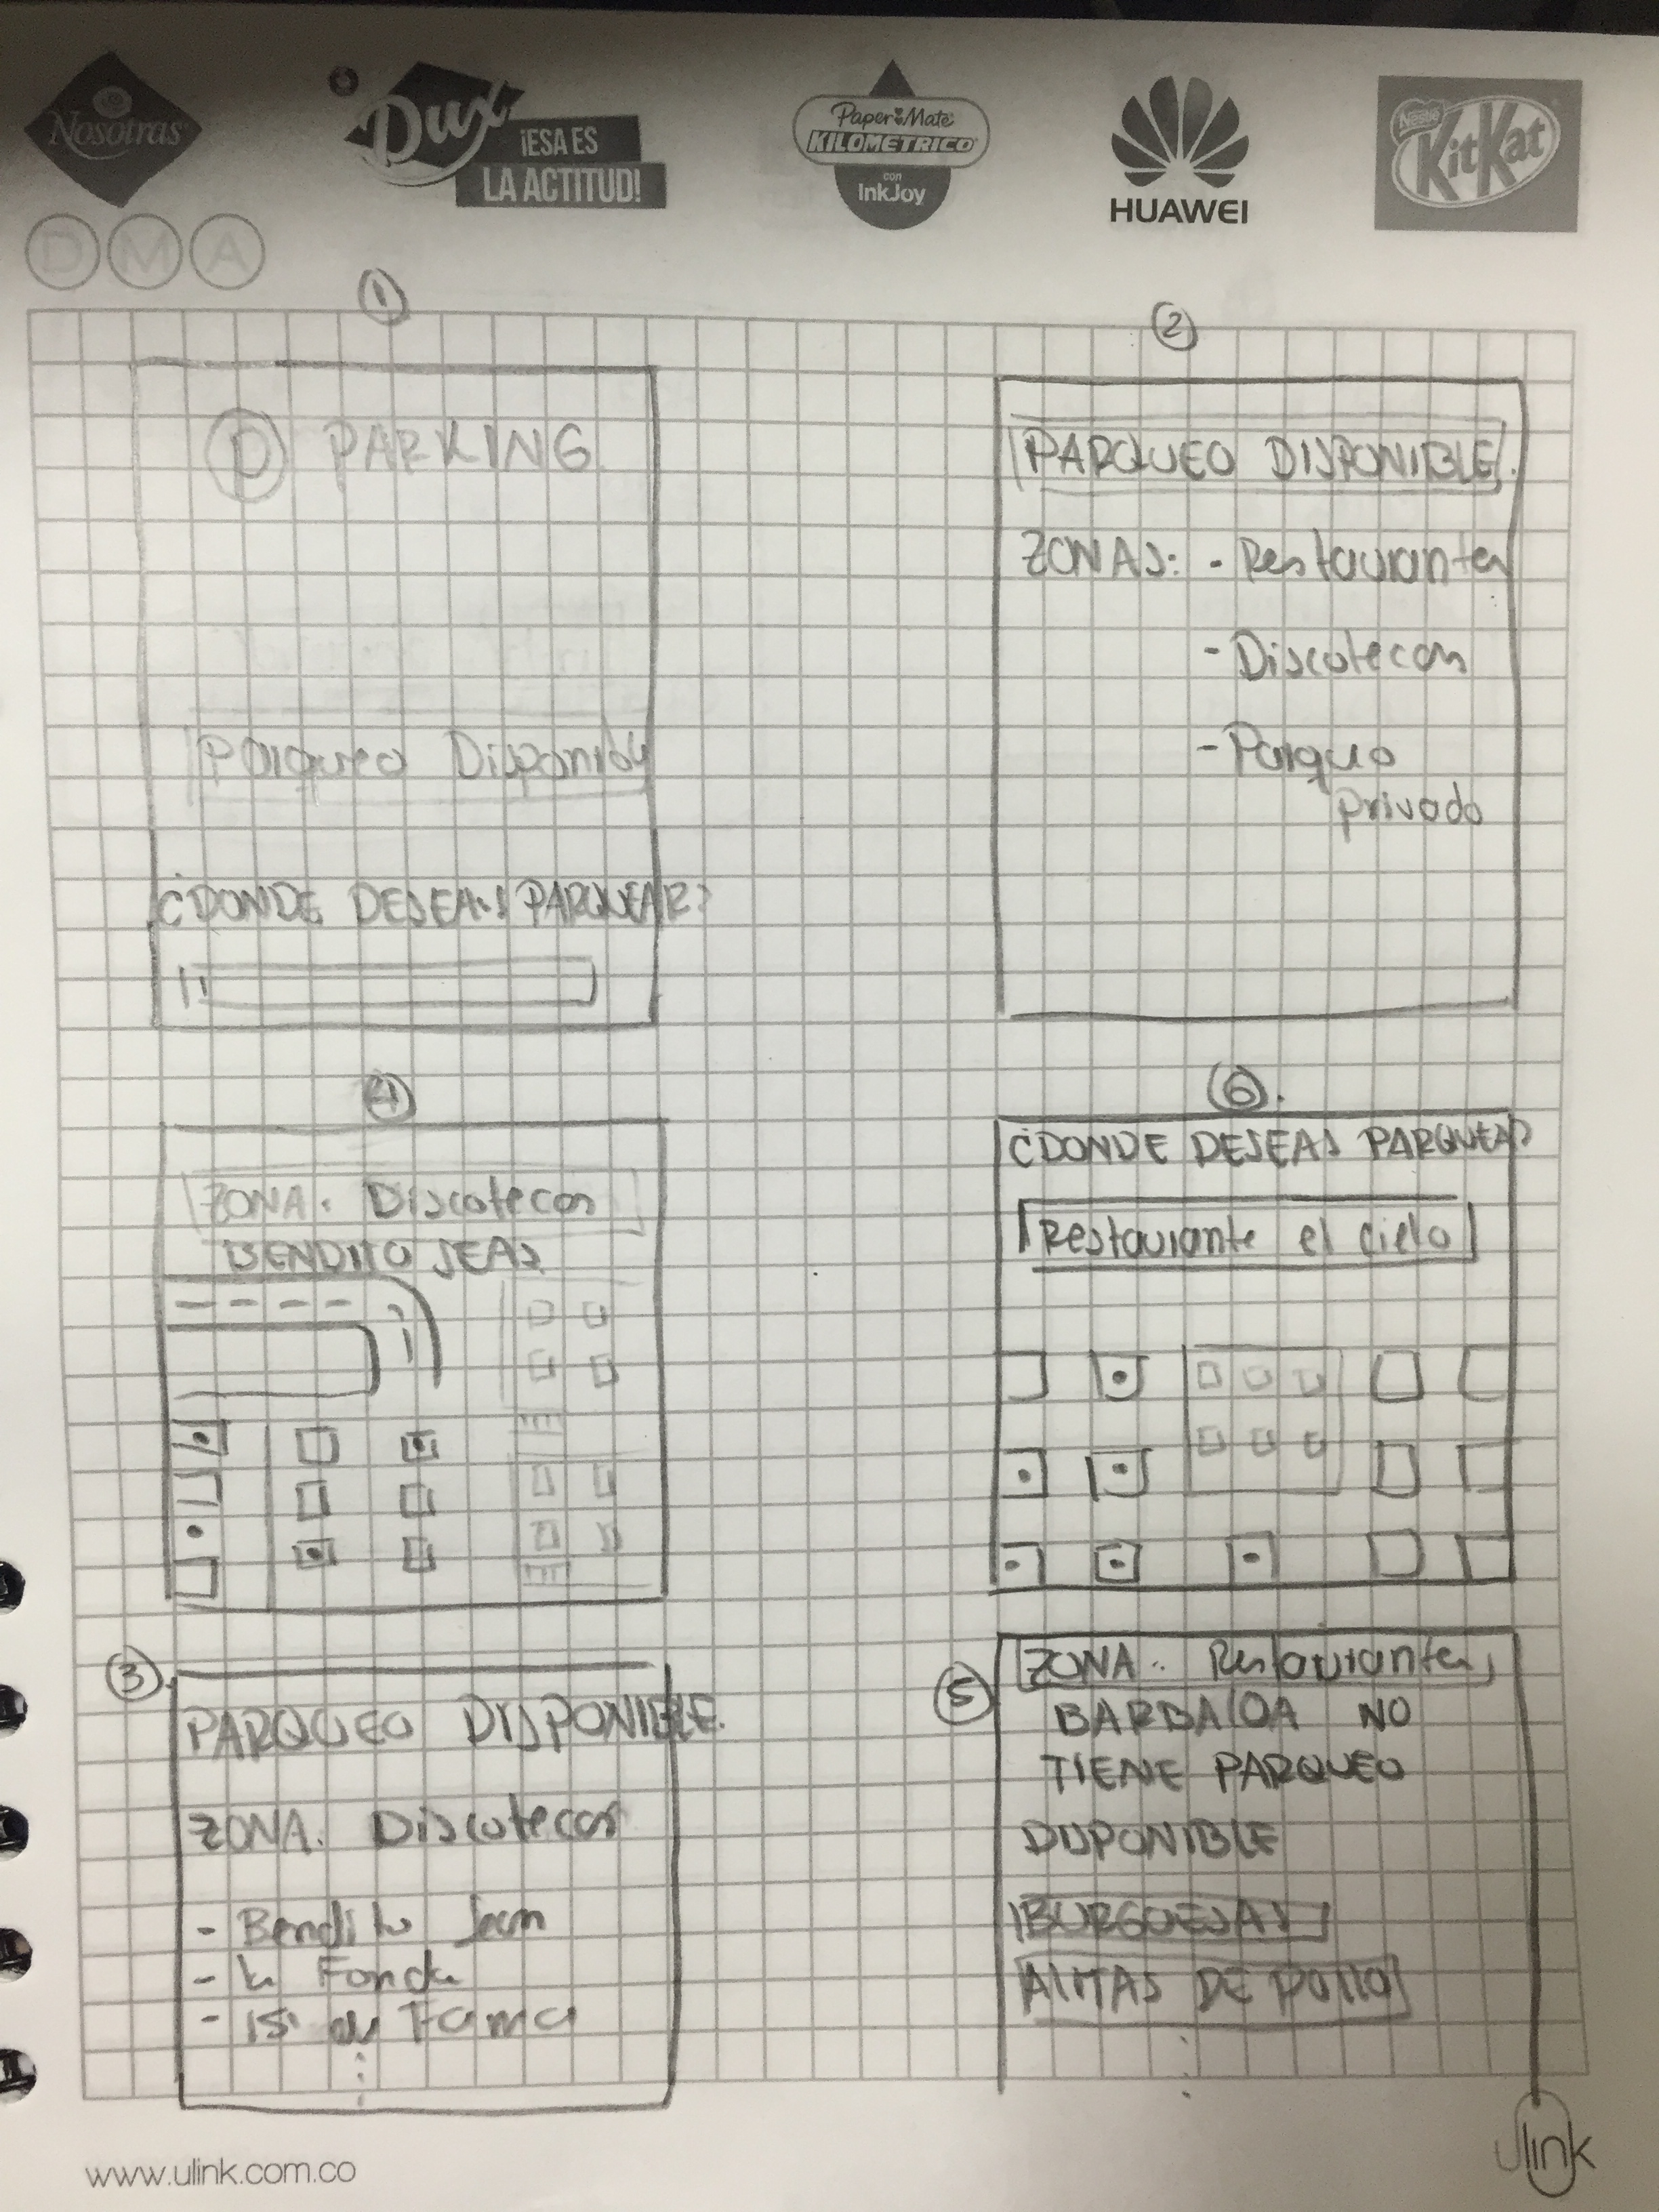 Nosotras
Dux ¡ESA ES
LA ACTITUD!
Paper Mate
KILOMETRICO
con
InkJoy
HUAWEI
Nestle
KitKat
D M A
1
P PARKING
Parqueo Disponible
¿DONDE DESEAS PARQUEAR?
2
PARQUEO DISPONIBLE.
ZONAS: - Restaurantes
- Discotecas
- Parqueo
privado
4
ZONA: Discotecas
BENDITO SEAS
6.
¿DONDE DESEAS PARQUEAR?
Restaurante el cielo
3
PARQUEO DISPONIBLE.
ZONA: Discotecas
- Bendito Seas
- la Fonda
- 15 de Fama
5
ZONA: Restaurantes
BARBAROA NO
TIENE PARQUEO
DISPONIBLE
BURGUESAS
ALITAS DE POLLO
www.ulink.com.co
ulink